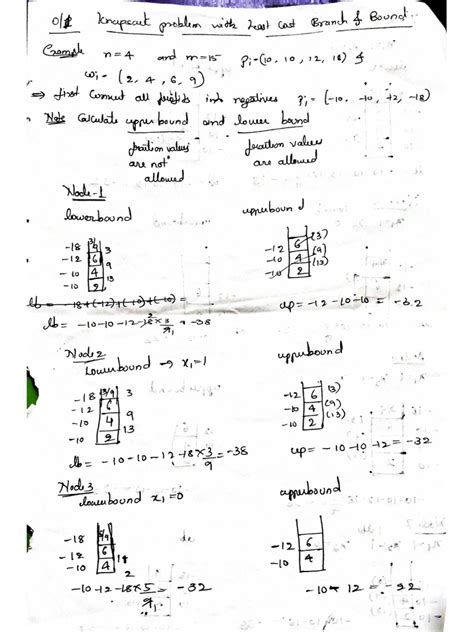 0/1 knapsack problem with Least Cost Branch & Bound
Example n=4 and m=15 Pi=(10, 10, 12, 18) &
wi = (2, 4, 6, 9)
⇒ first convert all profits into negatives Pi = (-10, -10, -12, -18)
Note Calculate upperbound and lower bound
fraction values are not allowed
fraction values are allowed
Node-1
lowerbound
upperbound
-18 3/9 3
-12 6 9
-10 4 13
-10 2
-12 6 (3)
-10 4 (9)
-10 2 (13)
lb = -18+(-12)+(-10)+(-10) =
lb = -10-10-12-18×3/9 = -38
up = -12-10-10 = -32
Node 2
Lowerbound → x₁=1
upperbound
-18 3/9 3
-12 6 9
-10 4 13
-10 2
-12 6 (3)
-10 4 (9)
-10 2 (13)
lb = -10-10-12-18×3/9 = -38
up = -10-10-12 = -32
Node 3
lowerbound x₁=0
upperbound
-18 5/9
-12 6
-10 4
-12 6
-10 4
-10-12-18×5/9 = -32
-10-12 = -22